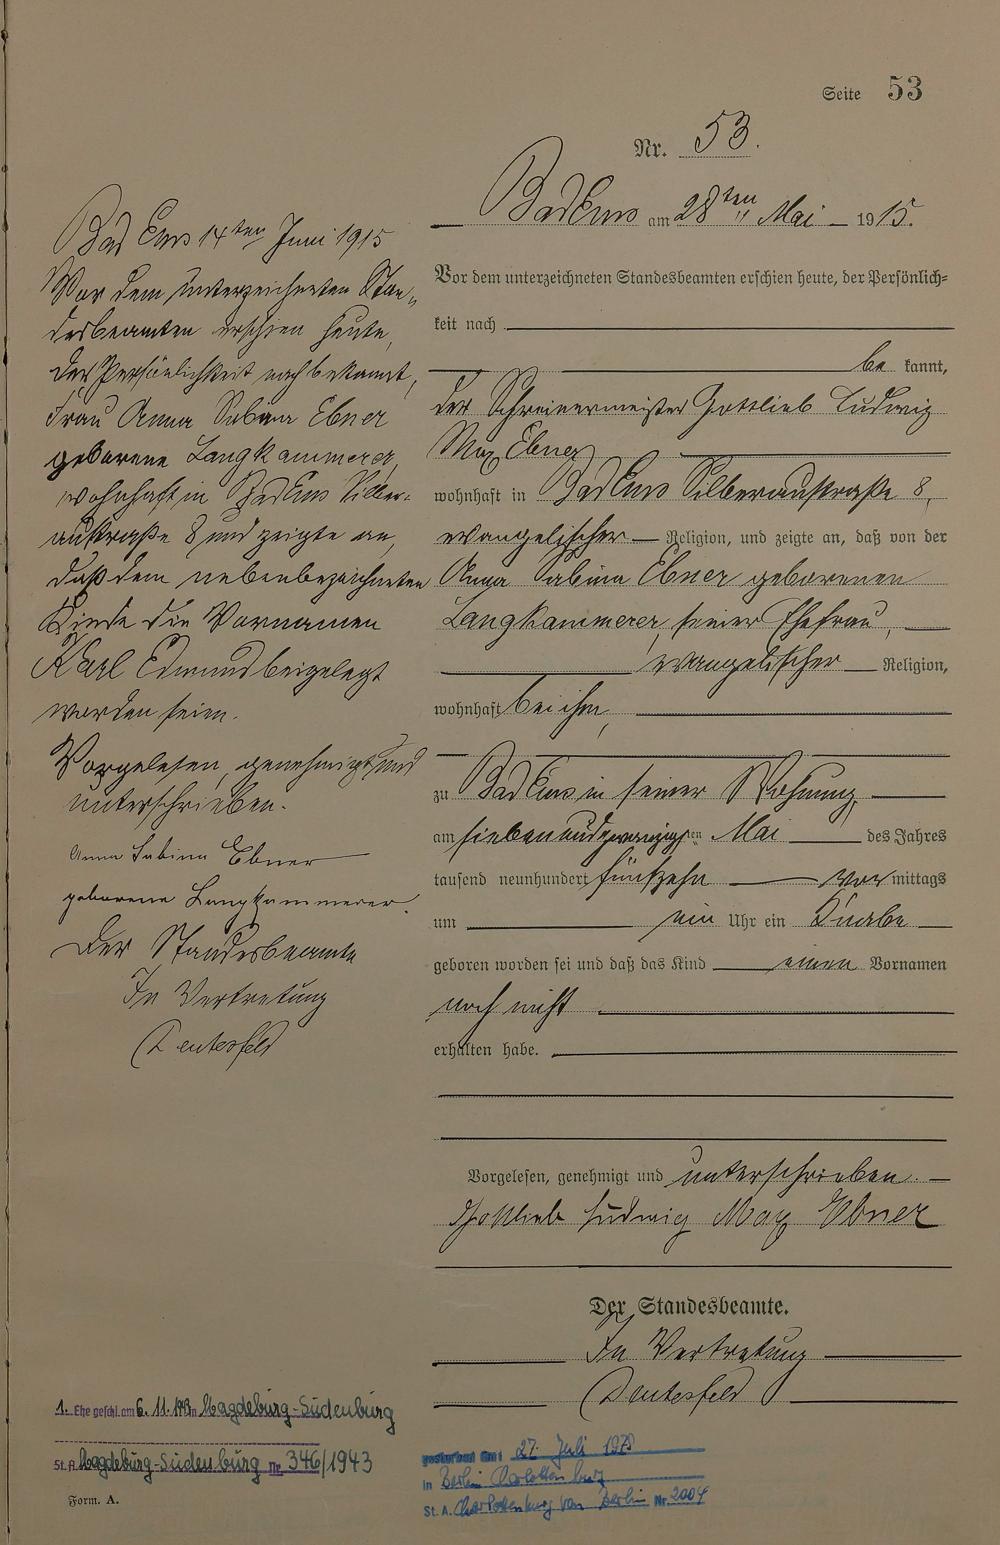 Seite 53
Nr. 53.
Bad Ems am 28ten Mai 1915.
Vor dem unterzeichneten Standesbeamten erschien heute, der Persönlich-
keit nach
be kannt,
der Schreinermeister Gottlieb Ludwig
Max Ebner
wohnhaft in Bad Ems Silberaustraße 8,
evangelischer Religion, und zeigte an, daß von der
Anna Sabina Ebner geborenen
Langkammerer, seiner Ehefrau,
evangelischer Religion,
wohnhaft bei ihm,
zu Bad Ems in seiner Wohnung,
am siebenundzwanzigsten Mai des Jahres
tausend neunhundert fünfzehn vor mittags
um ein Uhr ein Knabe
geboren worden sei und daß das Kind einen Vornamen
noch nicht
erhalten habe.
Vorgelesen, genehmigt und unterschrieben.
Gottlieb Ludwig Max Ebner
Der Standesbeamte.
In Vertretung
Bad Ems 14ten Juni 1915
Vor dem unterzeichneten Stan-
desbeamten erschien heute,
der Persönlichkeit nach bekannt,
Frau Anna Sabina Ebner
geborene Langkammerer,
wohnhaft in Bad Ems Silber-
austraße 8 und zeigte an,
daß dem nebenbezeichneten
Kinde die Vornamen
Karl Edmund beigelegt
worden seien.
Vorgelesen, genehmigt und
unterschrieben.
Anna Sabina Ebner
geborene Langkammerer.
Der Standesbeamte
In Vertretung
1. Ehe geschl. am 6. 11. 1943 in Magdeburg-Sudenburg
St. A. Magdeburg-Sudenburg Nr. 346/1943
Form. A.
gestorben am: 27. Juli
in Berlin Charlottenburg
St. A. Charlottenburg von Berlin Nr. 2004